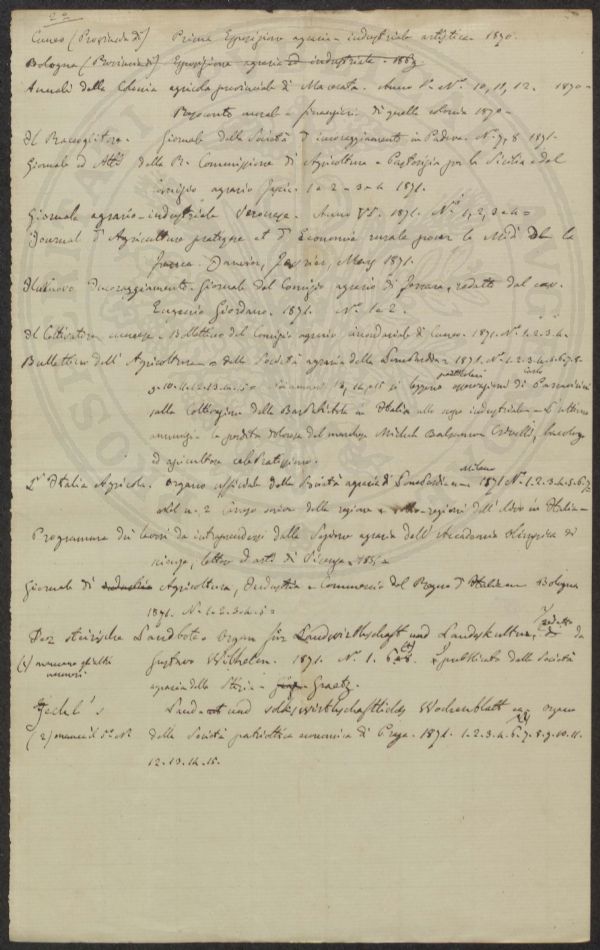 2°
Cuneo (Provincia di) Prima Esposizione agraria-industriale artistica - 1870.
Bologna (Provincia di) Esposizione agraria ed industriale - 1869
Annali della Colonia agricola provinciale di Macerata. Anno 1° N.° 10, 11, 12. 1870 -
Resoconto morale - di quella colonia 1870 -
Il Raccoglitore - Giornale della Società d'incoraggiamento in Padova. N. 7, 8 1871.
Giornale ed Atti della R. Commissione di Agricoltura e Pastorizia per la Sicilia e del
Comizio agrario 1 e 2 - 3 e 4 1871.
Giornale agrario-industriale Veronese - Anno VI. 1871. N.i 1, 2, 3 e 4 =
Journal d'Agriculture pratique et d'Economie rurale pour le Midi de la
France. Janvier, Fevrier, Mars 1871.
Il nuovo Incoraggiamento. Giornale del Comizio agrario di Ferrara, redatto dal cav.
Eugenio Giordano. 1871. N.° 1 e 2.
Il Coltivatore cuneese - Bollettino del Comizio agrario circondariale di Cuneo. 1871. N.i 1. 2. 3. 4.
Bullettino dell'Agricoltura - della Società agraria della Lombardia - 1871. N.i 1. 2. 3. 4. 5. 6. 7. 8.
9. 10. 11. 12. 13. 14. 15 = 13, 14, 15 si leggono particolari osservazioni di Carlo
sulla Coltivazione della Barbabietola in Italia allo scopo industriale - L'ultimo
annunzia la perdita dolorosa del marchese Michele Balsamo Crivelli,
ed agricoltore celebratissimo.
L'Italia Agricola. Organo ufficiale della Società agraria di Lombardia - Milano 1871 N.i 1. 2. 3. 4. 5. 6. 7.
nel n. 2 della regione e - regioni dell'Olivo in Italia -
Programma dei lavori da intraprendersi dalla Sezione agraria dell'Accademia Olimpica di
scienze, lettere ed arti di Vicenza - 1871 -
Giornale di Agricoltura, Industria e Commercio del Regno d'Italia - Bologna
1871. N.i 1. 2. 3. 4. 5 =
Der steirische Landbote - Organ für Landwirthschaft und Landeskultur, redatto da
(1) mancano gli altri numeri
Gustavo Wilhelm. 1871. N. 1. 6 e 8. (1) pubblicato dalla Società
agraria della Stiria - Graetz.
Land- und volkswirthschaftliches Wochenblatt - organo
(2) manca il 5° N.°
della Società patriottica economica di Praga. 1871. 1. 2. 3. 4. 6. 7. 8. 9. 10. 11.
12. 13. 14. 15.